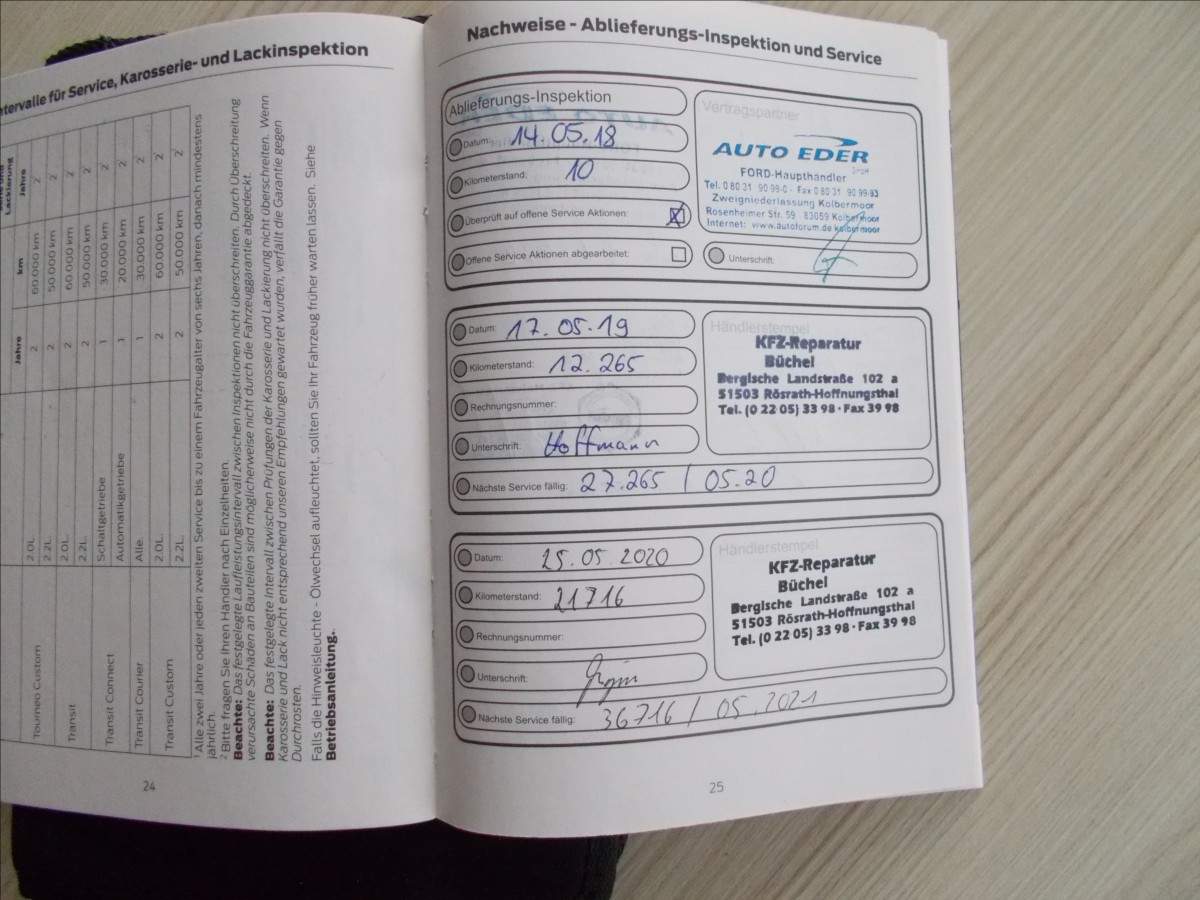 Intervalle für Service, Karosserie- und Lackinspektion
Lackierung
Jahre km Jahre
2.0L 2 60.000 km 2
Tourneo Custom 2.2L 2 50.000 km 2
2.0L 2 60.000 km 2
Transit 2.2L 2 50.000 km 2
Schaltgetriebe 1 30.000 km 2
Transit Connect Automatikgetriebe 1 20.000 km 2
Transit Courier Alle. 1 30.000 km 2
2.0L 2 60.000 km 2
Transit Custom 2.2L 2 50.000 km 2
1 Alle zwei Jahre oder jeden zweiten Service bis zu einem Fahrzeugalter von sechs Jahren, danach mindestens
jährlich.
2 Bitte fragen Sie Ihren Händler nach Einzelheiten.
Beachte: Das festgelegte Laufleistungsintervall zwischen Inspektionen nicht überschreiten. Durch Überschreitung
verursachte Schäden an Bauteilen sind möglicherweise nicht durch die Fahrzeuggarantie abgedeckt.
Beachte: Das festgelegte Intervall zwischen Prüfungen der Karosserie und Lackierung nicht überschreiten. Wenn
Karosserie und Lack nicht entsprechend unseren Empfehlungen gewartet wurden, verfällt die Garantie gegen
Durchrosten.
Falls die Hinweisleuchte - Ölwechsel aufleuchtet, sollten Sie Ihr Fahrzeug früher warten lassen. Siehe
Betriebsanleitung.
24
Nachweise - Ablieferungs-Inspektion und Service
Ablieferungs-Inspektion
Datum: 14.05.18
Kilometerstand: 10
Überprüft auf offene Service Aktionen: X
Offene Service Aktionen abgearbeitet:
Vertragspartner
AUTO EDER
GmbH
FORD-Haupthändler
Tel. 0 80 31 90 99-0 - Fax 0 80 31 90 99-93
Zweigniederlassung Kolbermoor
Rosenheimer Str. 59 83059 Kolbermoor
Internet: www.autoforum.de kolbermoor
Unterschrift:
Datum: 17.05.19
Kilometerstand: 12.265
Rechnungsnummer:
Unterschrift: Hoffmann
Nächste Service fällig: 27.265 / 05.20
Händlerstempel
KFZ-Reparatur
Büchel
Bergische Landstraße 102 a
51503 Rösrath-Hoffnungsthal
Tel. (0 22 05) 33 98 · Fax 39 98
Datum: 25.05.2020
Kilometerstand: 21716
Rechnungsnummer:
Unterschrift:
Nächste Service fällig: 36716 / 05.2021
Händlerstempel
KFZ-Reparatur
Büchel
Bergische Landstraße 102 a
51503 Rösrath-Hoffnungsthal
Tel. (0 22 05) 33 98 · Fax 39 98
25